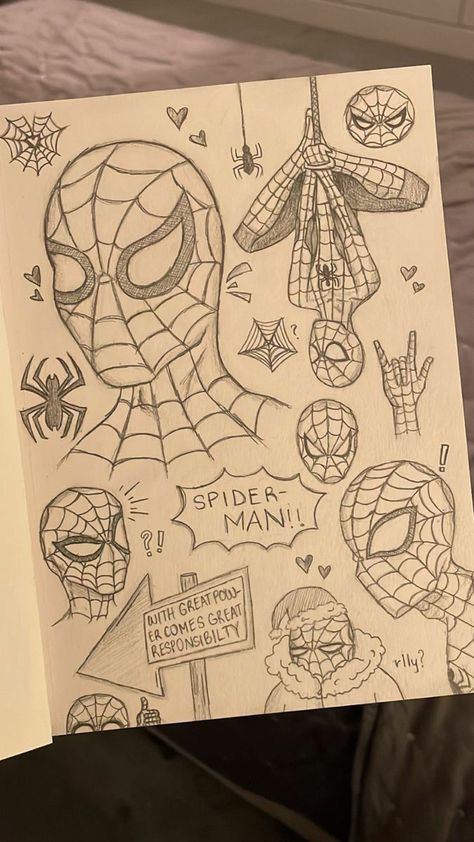 ?
SPIDER-
MAN!!
!
?!
WITH GREAT POW-
ER COMES GREAT
RESPONSIBILTY
rlly?